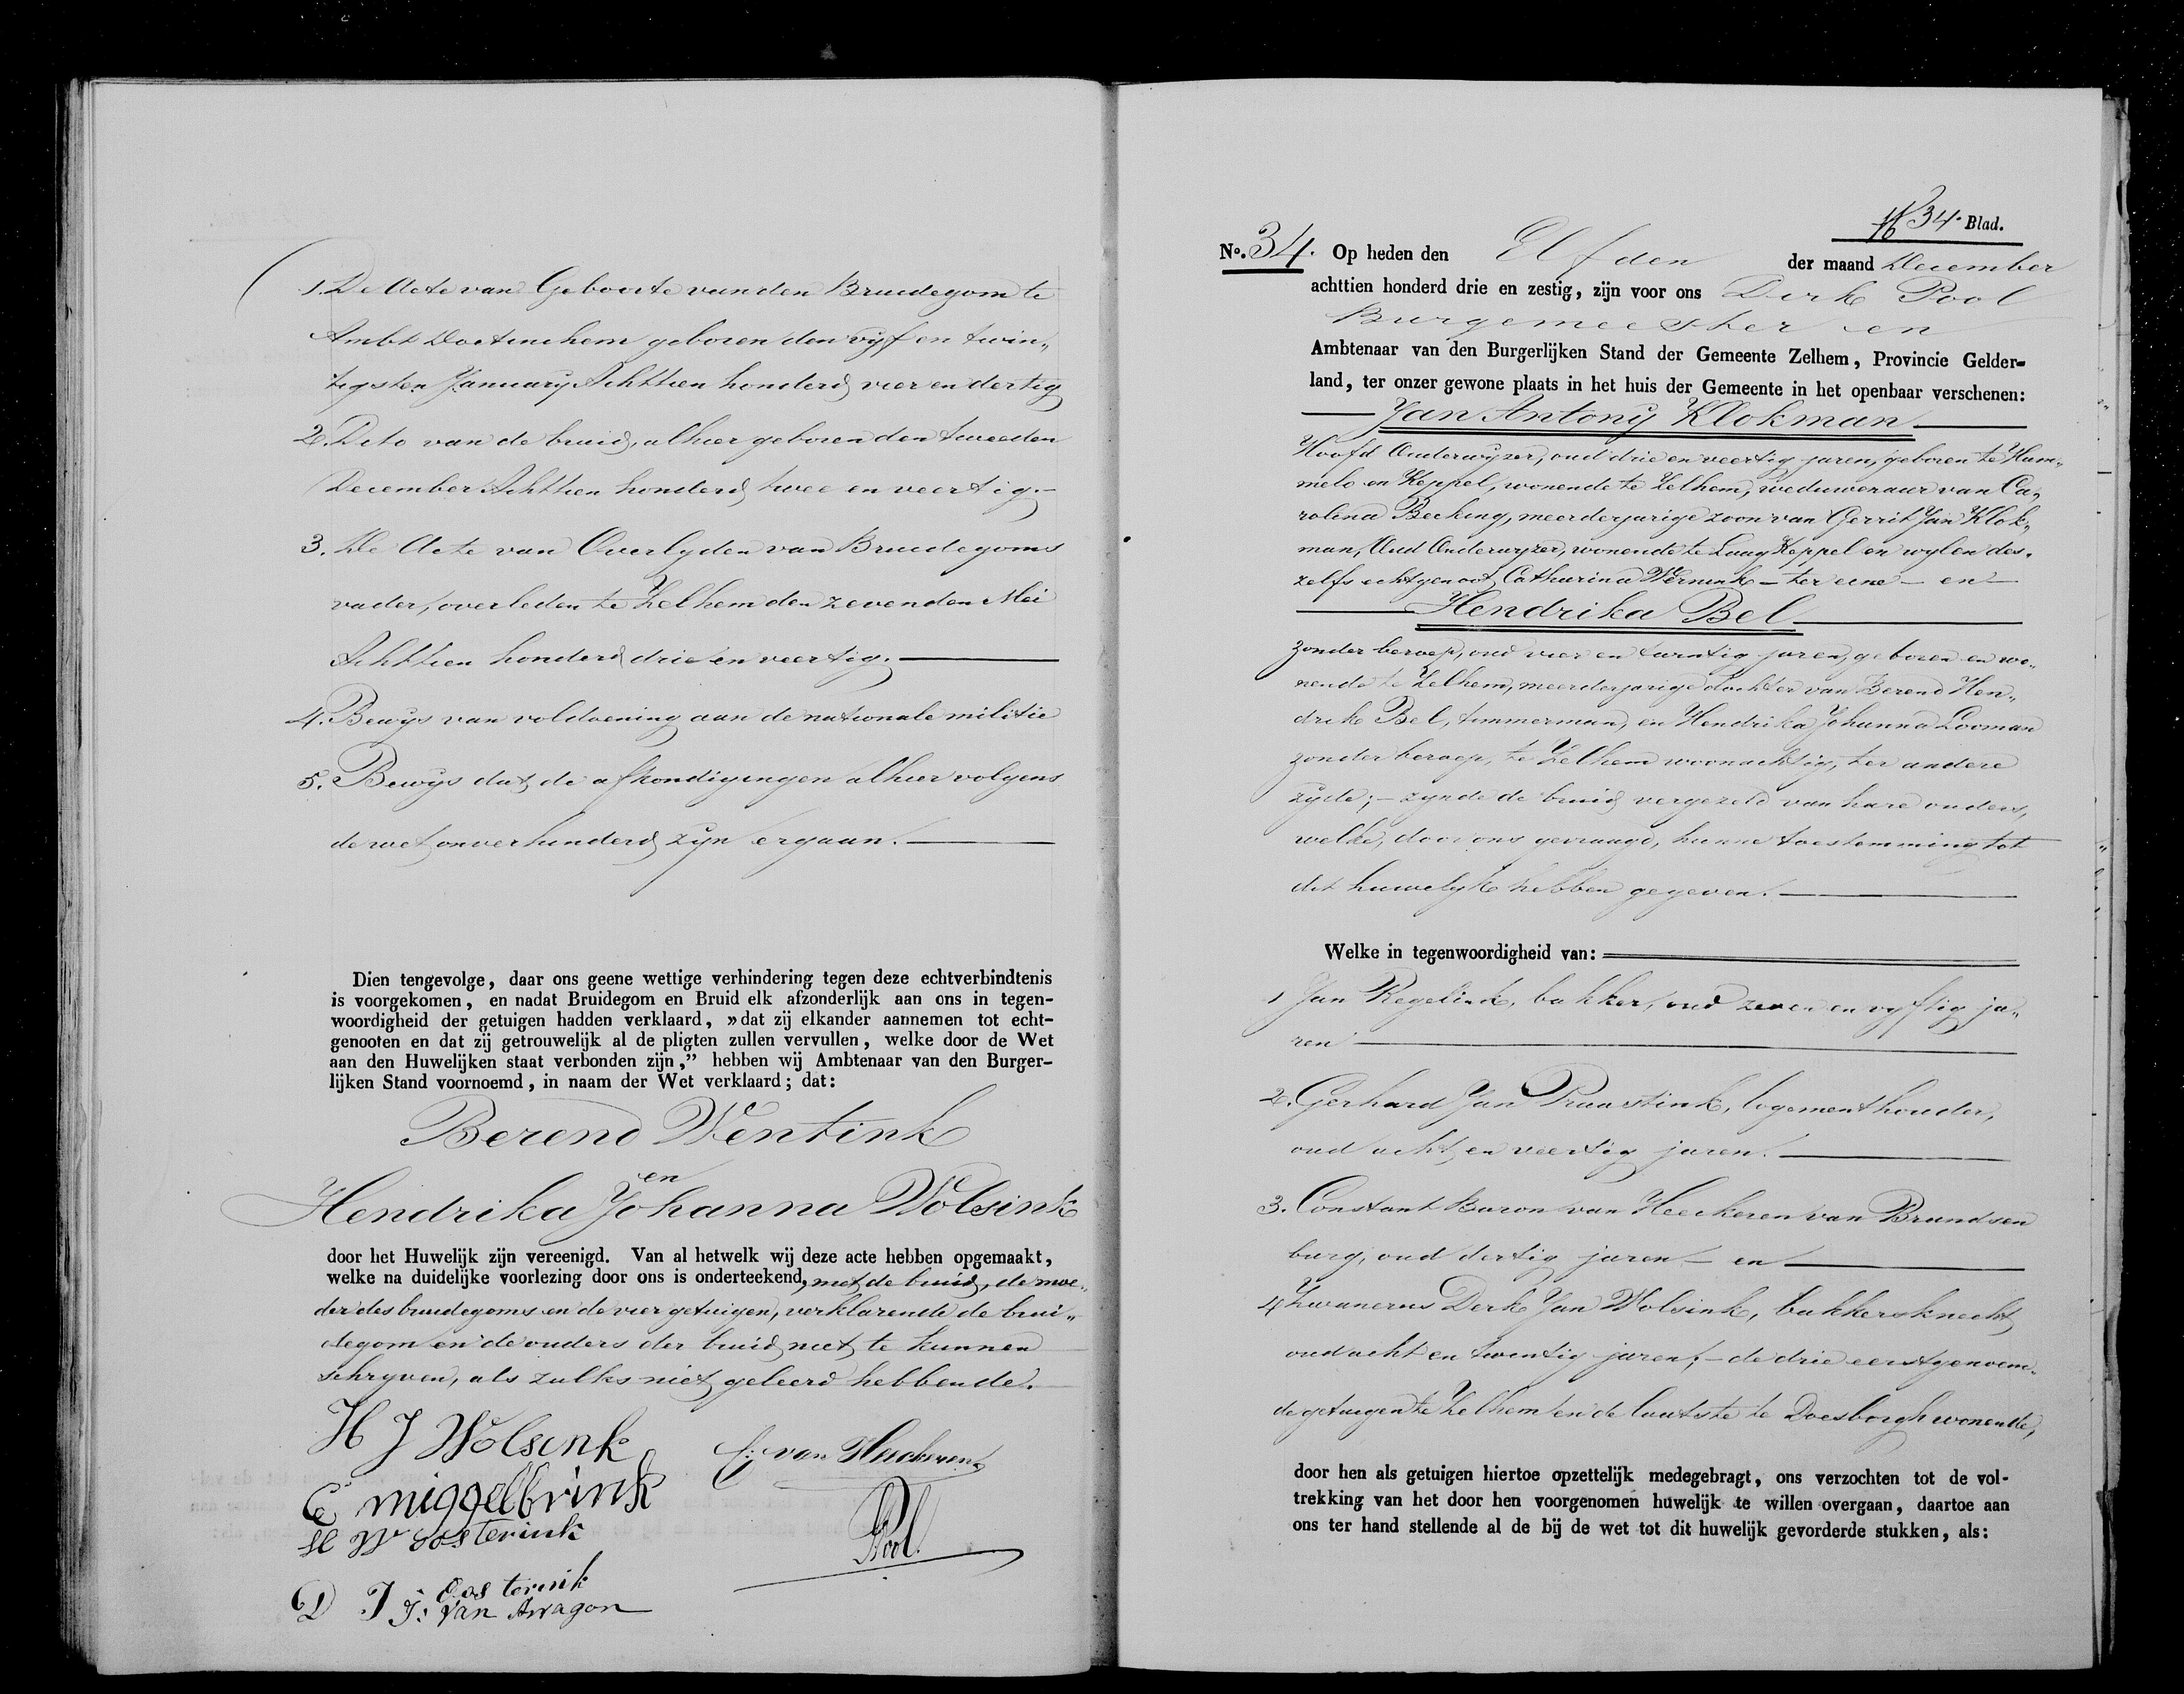 1. De Acte van Geboorte van den Bruidegom te
Ambt Doetinchem geboren den vyf en twin„
tigsten January Achttien honderd vier en dertig
2. Dito van de bruid, alhier geboren den tweeden
December Achttien honderd twee en veertig.-
3. De Acte van Overlyden van Bruidegoms
vader, overleden te Zelhem den zevenden Mei
Achttien honderd drie en veertig.
4. Bewys van voldoening aan de nationale militie
5. Bewys dat de afkondigingen alhier volgens
de wet onverhinderd zyn ergaan.
Dien tengevolge, daar ons geene wettige verhindering tegen deze echtverbindtenis
is voorgekomen, en nadat Bruidegom en Bruid elk afzonderlijk aan ons in tegen-
woordigheid der getuigen hadden verklaard, »dat zij elkander aannemen tot echt-
genooten en dat zij getrouwelijk al de pligten zullen vervullen, welke door de Wet
aan den Huwelijken staat verbonden zijn,” hebben wij Ambtenaar van den Burger-
lijken Stand voornoemd, in naam der Wet verklaard; dat:
Berend Wentink
en
Hendrika Johanna Wolsink
door het Huwelijk zijn vereenigd. Van al hetwelk wij deze acte hebben opgemaakt,
welke na duidelijke voorlezing door ons is onderteekend, met de bruid, de moe„
der des bruidegoms en de vier getuigen, verklarende de brui„
degom en de ouders der bruid niet te kunnen
schryven, als zulks niet geleerd hebbende.
H J Wolsink
C. van Heeckeren
E miggelbrink
H W oosterink
Pool
D J Oosterink
J: van Aragon
34. Blad.
No. 34. Op heden den Elfden der maand December
achttien honderd drie en zestig, zijn voor ons Derk Pool
Burgemeester en
Ambtenaar van den Burgerlijken Stand der Gemeente Zelhem, Provincie Gelder-
land, ter onzer gewone plaats in het huis der Gemeente in het openbaar verschenen:
Jan Antony Klokman
Hoofd Onderwyzer, oud drie en veertig jaren, geboren te Hum„
melo en Keppel, wonende te Zelhem, weduwenaar van Ca„
rolina Becking, meerderjarige zoon van Gerrit Jan Klok„
man, Oud Onderwyzer, wonende te Laag Keppel en wylen des„
zelfs echtgenoot Catharina Wernink - ter eene - en -
Hendrika Bel
zonder beroep, oud vier en twintig jaren, geboren en wo„
nende te Zelhem, meerderjarige dochter van Berend Hen„
drik Bel, timmerman, en Hendrika Johanna Looman
zonder beroep, te Zelhem woonachtig, ter andere
zyde; - zynde de bruid vergezeld van hare ouders,
welke, door ons gevraagd, hunne toestemming tot
dit huwelyk hebben gegeven.
Welke in tegenwoordigheid van:
1 Jan Regelink, bakker, oud zeven en vyftig ja„
ren
2. Gerhard Jan Praastink, logementhouder,
oud acht en veertig jaren.
3. Constant Baron van Heeckeren van Brandsen
burg, oud dertig jaren - en
4 Zwanerus Derk Jan Wolsink, bakkersknecht
oud acht en twintig jaren; - de drie eerstgenoem„
de getuigen te Zelhem en de laatste te Doesborgh wonende,
door hen als getuigen hiertoe opzettelijk medegebragt, ons verzochten tot de vol-
trekking van het door hen voorgenomen huwelijk te willen overgaan, daartoe aan
ons ter hand stellende al de bij de wet tot dit huwelijk gevorderde stukken, als: